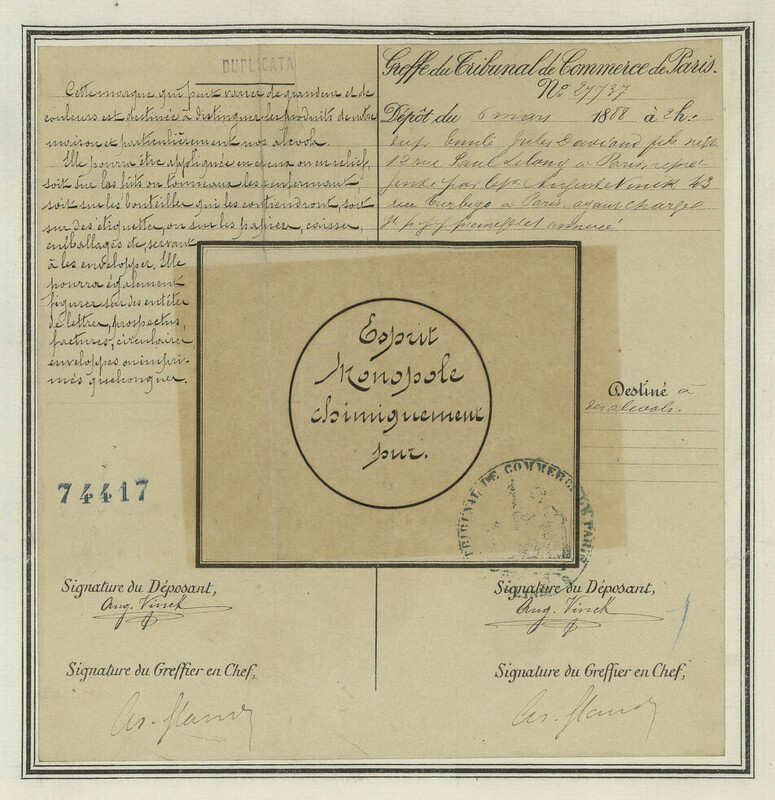 DUPLICATA
Cette marque qui peut varier de grandeur et de
couleurs est destinée à distinguer les produits de notre
maison et particulièrement nos alcools.
Elle pourra être appliquée en creux ou en relief,
soit sur les fûts ou tonneaux les renfermant,
soit sur les bouteilles qui les contiendront, soit
sur des étiquettes, ou sur les papiers, caisses,
emballages etc. servant
à les envelopper. Elle
pourra également
figurer sur des entêtes
de lettres, prospectus,
factures, circulaires
enveloppes ou impri-
més quelconques.
74417
Greffe du Tribunal de Commerce de Paris.
No 27737
Dépôt du 6 mars 1888 à 2h.
Emile Jules
12 rue Paul Lelong à Paris, repré-
senté par le Sr. Auguste Vinck 43
rue Turbigo à Paris, ayant charge
Esprit
Monopole
chimiquement
pur.
Destiné à
des alcools.
TRIBUNAL DE COMMERCE PARIS
Signature du Déposant,
Aug. Vinck
Signature du Greffier en Chef,
Signature du Déposant,
Aug. Vinck
Signature du Greffier en Chef,